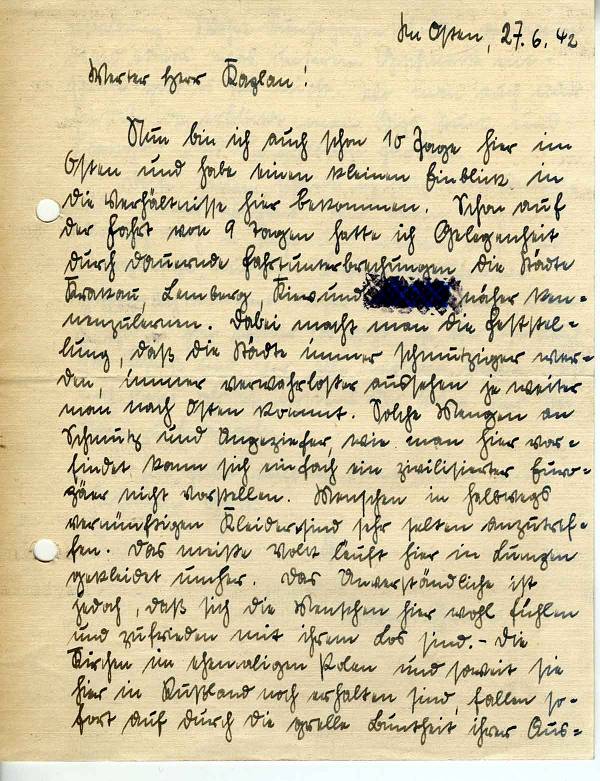 Im Osten, 27.6.42
Werter Herr Kaplan!
Nun bin ich auch schon 10 Tage hier im
Osten und habe einen kleinen Einblick in
die Verhältnisse hier bekommen. Schon auf
der Fahrt von 9 Tagen hatte ich Gelegenheit
durch dauernde Fahrtunterbrechungen die Städte
Krakau, Lemberg, Kiew und näher ken-
nenzulernen. Dabei macht man die Feststel-
lung, daß die Städte immer schmutziger wer-
den, immer verwahrloster aussehen je weiter
man nach Osten kommt. Solche Mengen an
Schmutz und Ungeziefer, wie man hier vor-
findet kann sich einfach ein zivilisierter Euro-
päer nicht vorstellen. Menschen in halbwegs
vernünftigen Kleider sind sehr selten anzutref-
fen. Das meiste Volk läuft hier in Lumpen
gekleidet umher. Das Unverständliche ist
jedoch, daß sich die Menschen hier wohl fühlen
und zufrieden mit ihrem Los sind. - Die
Kirchen im ehemaligen Polen und soweit sie
hier in Rußland noch erhalten sind, fallen so-
fort auf durch die grelle Buntheit ihrer Aus-